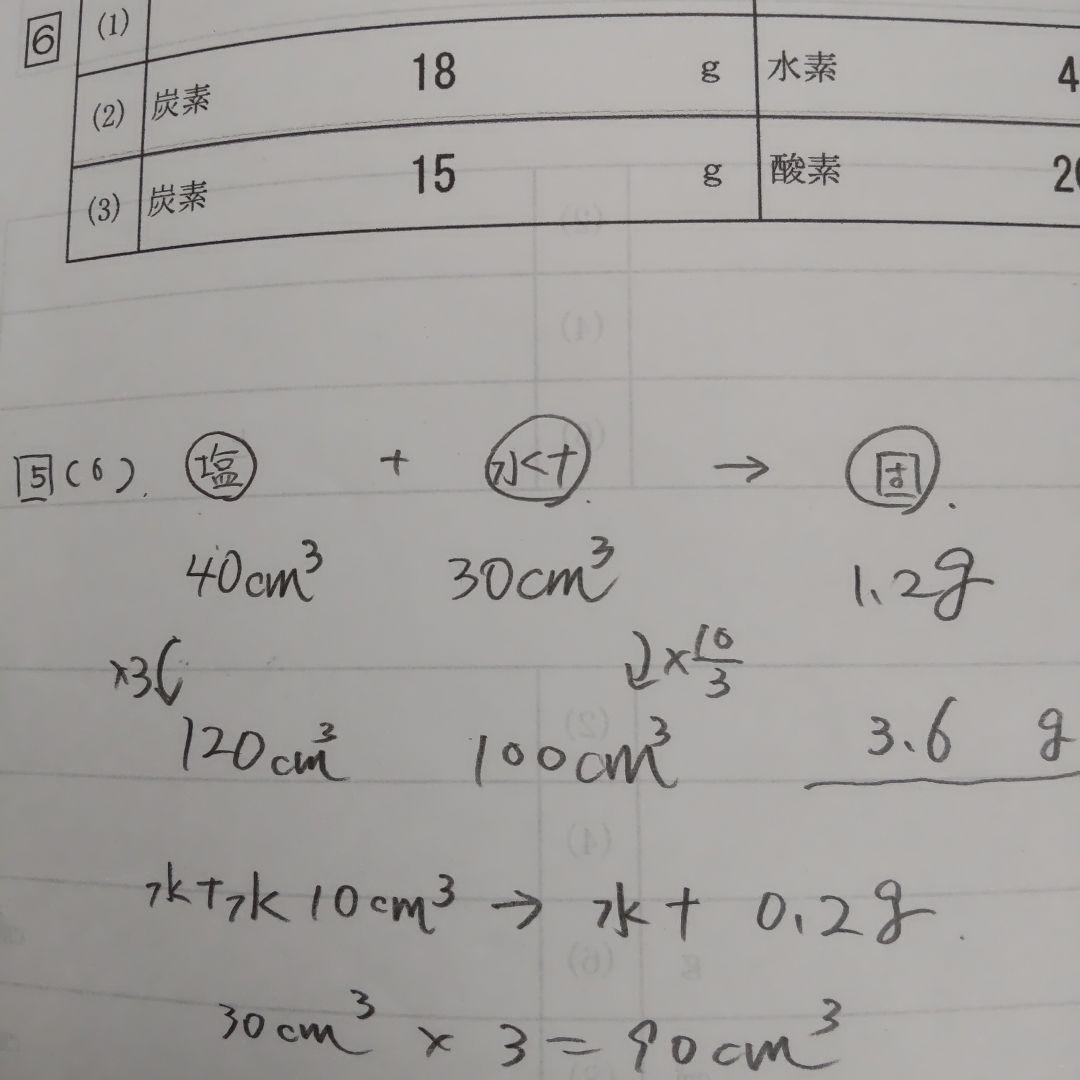 6 (1)
(2) 炭素 18 g 水素 4
(3) 炭素 15 g 酸素 20
5(6). 塩 + 水ナ → 固.
40cm³ 30cm³ 1.2g
×3 ×10/3
120cm³ 100cm³ 3.6 g
水ナ水10cm³ → 水ナ 0.2g.
30cm³ × 3 = 90cm³